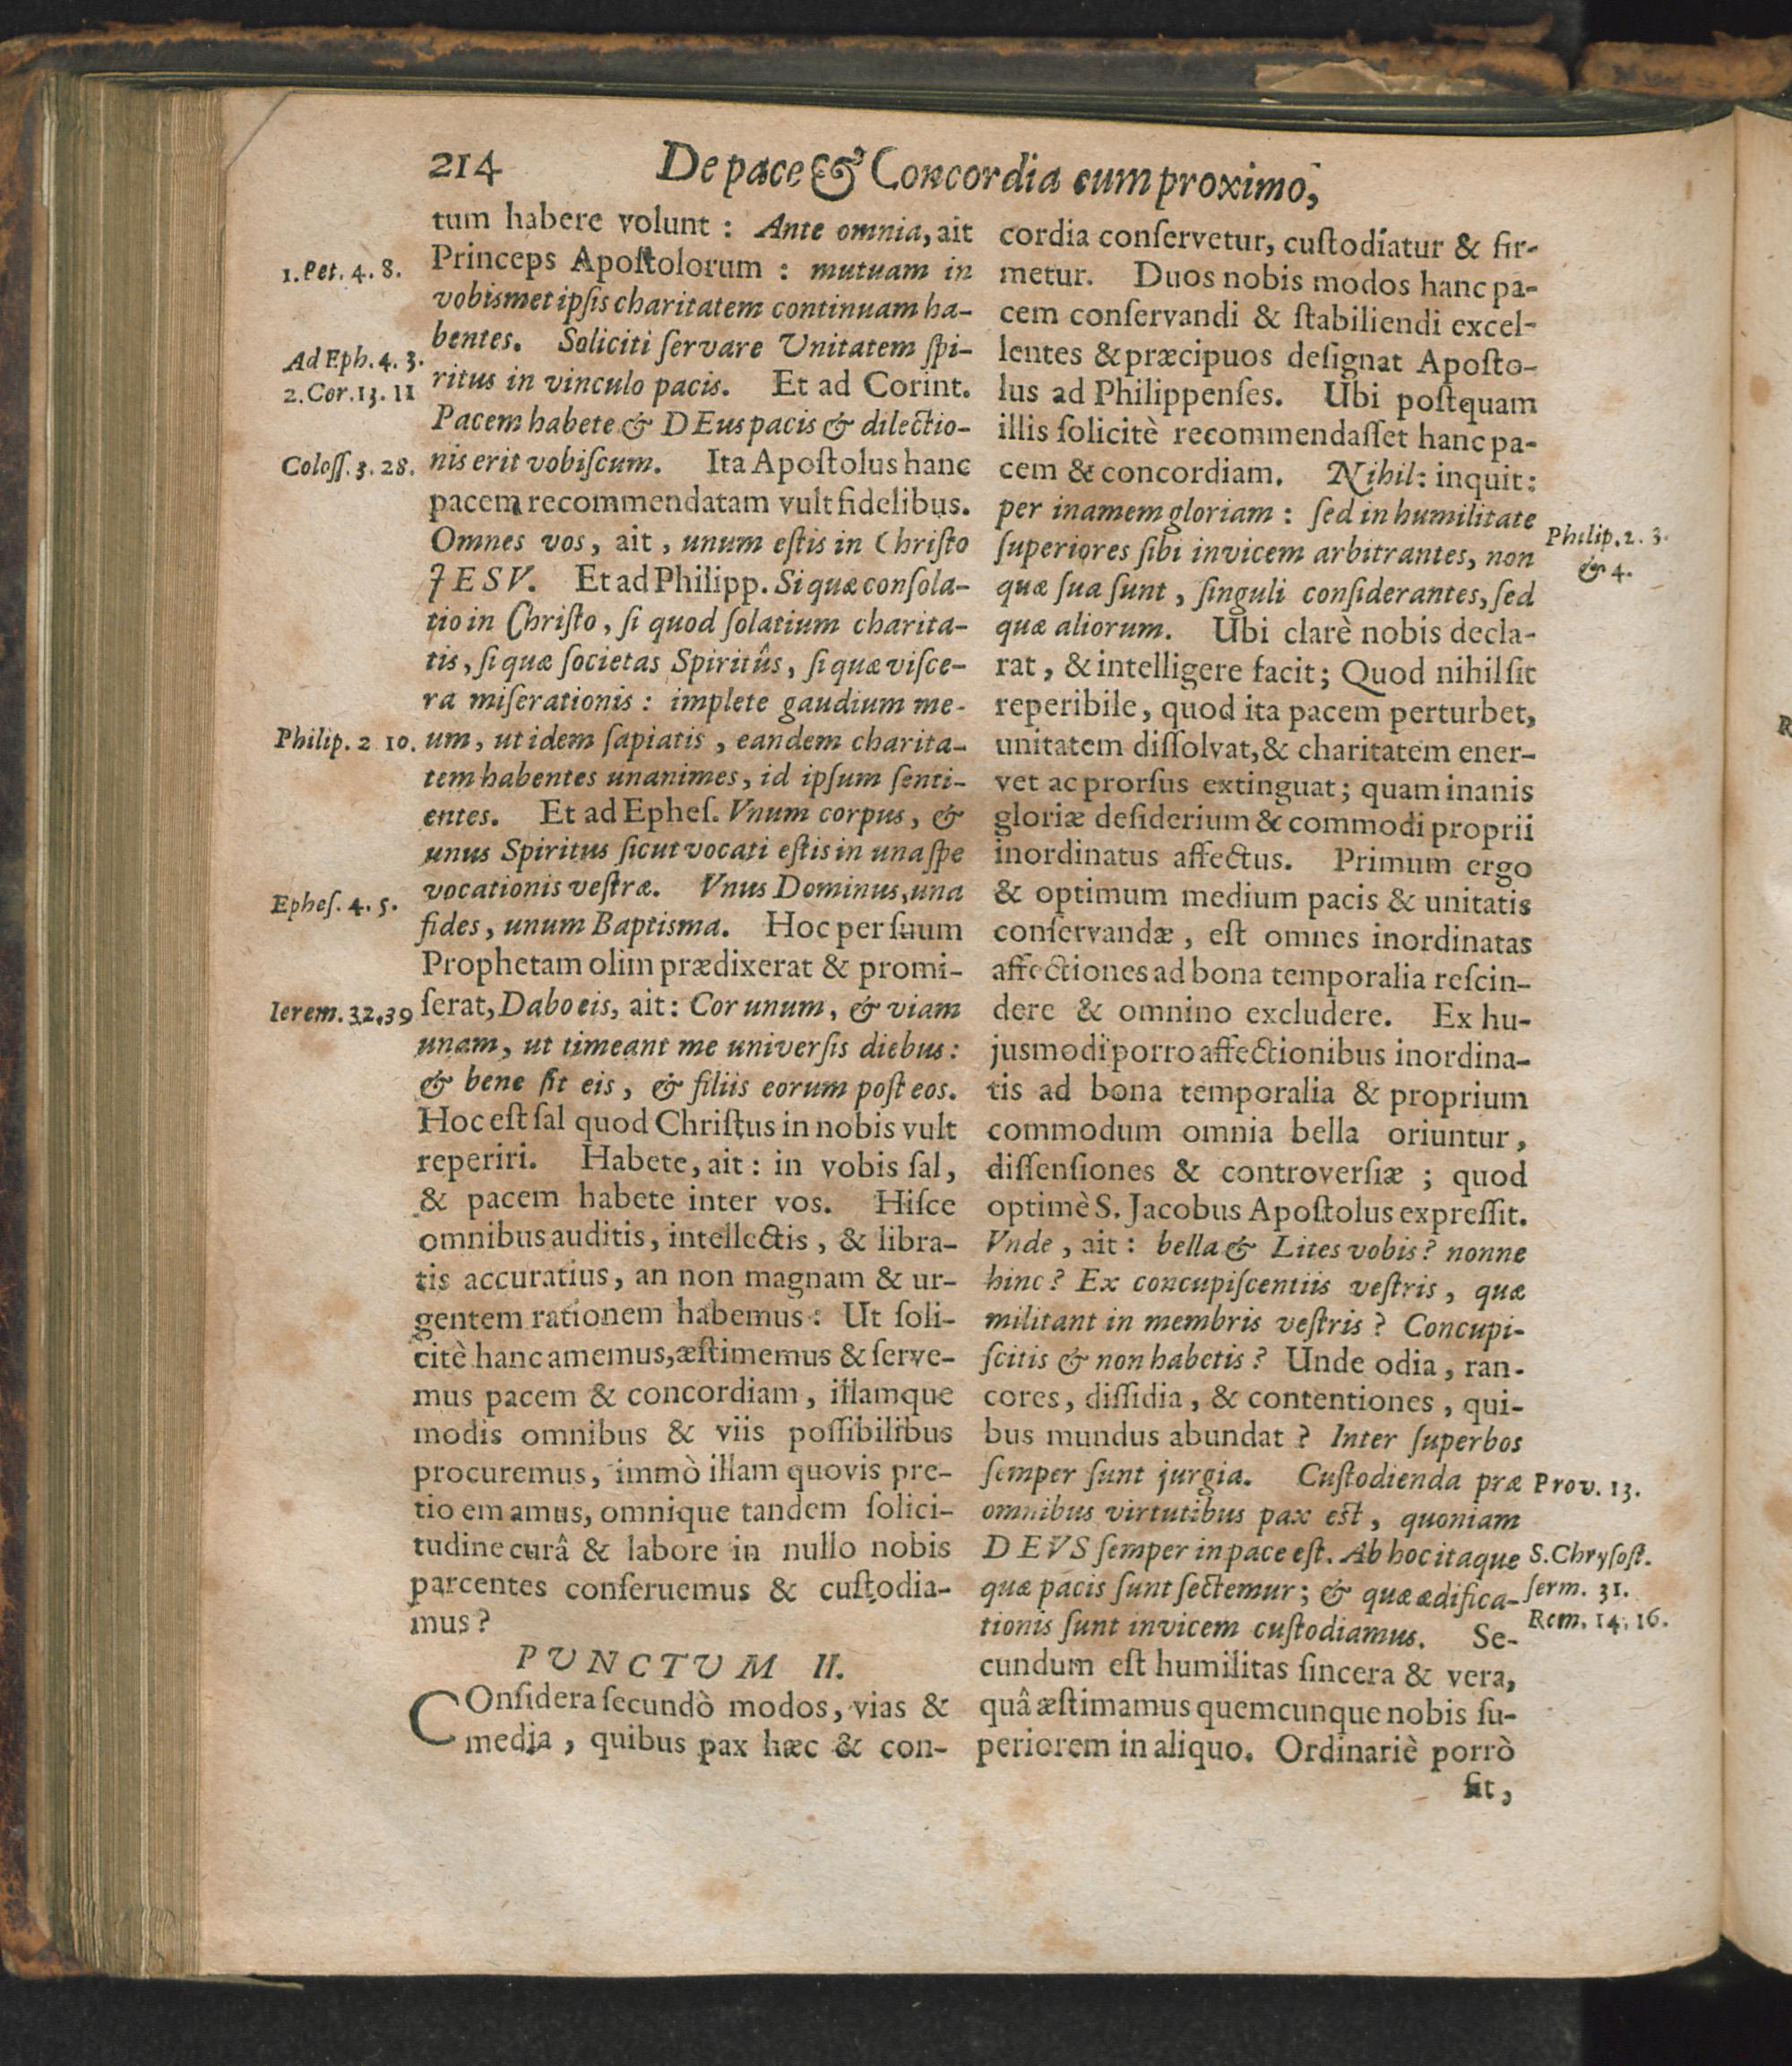 214 De pace & Concordia cum proximo,
tum habere volunt : Ante omnia, ait
1. Pet. 4. 8.
Princeps Apostolorum : mutuam in
vobismet ipsis charitatem continuam ha-
bentes. Soliciti servare Unitatem spi-
Ad Eph. 4. 3.
ritus in vinculo pacis. Et ad Corint.
2. Cor. 13. 11
Pacem habete & DEus pacis & dilectio-
nis erit vobiscum. Ita Apostolus hanc
Coloss. 3. 28.
pacem recommendatam vult fidelibus.
Omnes vos, ait, unum estis in Christo
JESV. Et ad Philipp. Si quæ consola-
tio in Christo, si quod solatium charita-
tis, si quæ societas Spiritûs, si quæ visce-
ra miserationis : implete gaudium me-
um, ut idem sapiatis, eandem charita-
Philip. 2 10.
tem habentes unanimes, id ipsum senti-
entes. Et ad Ephes. Vnum corpus, &
unus Spiritus sicut vocati estis in una spe
vocationis vestræ. Vnus Dominus, una
Ephes. 4. 5.
fides, unum Baptisma. Hoc per suum
Prophetam olim prædixerat & promi-
serat, Dabo eis, ait: Cor unum, & viam
Ierem. 32. 39
unam, ut timeant me universis diebus:
& bene sit eis, & filiis eorum post eos.
Hoc est sal quod Christus in nobis vult
reperiri. Habete, ait: in vobis sal,
& pacem habete inter vos. Hisce
omnibus auditis, intellectis, & libra-
tis accuratius, an non magnam & ur-
gentem rationem habemus: Ut soli-
citè hanc amemus, æstimemus & serve-
mus pacem & concordiam, illamque
modis omnibus & viis possibilibus
procuremus, immò illam quovis pre-
tio emamus, omnique tandem solici-
tudine curâ & labore in nullo nobis
parcentes conseruemus & custodia-
mus?
PUNCTUM II.
COnsidera secundò modos, vias &
media, quibus pax hæc & con-
cordia conservetur, custodiatur & fir-
metur. Duos nobis modos hanc pa-
cem conservandi & stabiliendi excel-
lentes & præcipuos designat Aposto-
lus ad Philippenses. Ubi postquam
illis solicitè recommendasset hanc pa-
cem & concordiam. Nihil: inquit:
per inamem gloriam : sed in humilitate
Philip. 2. 3.
superiores sibi invicem arbitrantes, non
& 4.
quæ sua sunt, singuli considerantes, sed
quæ aliorum. Ubi clarè nobis decla-
rat, & intelligere facit; Quod nihil sit
reperibile, quod ita pacem perturbet,
unitatem dissolvat, & charitatem ener-
vet ac prorsus extinguat; quam inanis
gloriæ desiderium & commodi proprii
inordinatus affectus. Primum ergo
& optimum medium pacis & unitatis
conservandæ, est omnes inordinatas
affectiones ad bona temporalia rescin-
dere & omnino excludere. Ex hu-
jusmodi porro affectionibus inordina-
tis ad bona temporalia & proprium
commodum omnia bella oriuntur,
dissensiones & controversiæ ; quod
optimè S. Jacobus Apostolus expressit.
Vnde, ait: bella & Lites vobis? nonne
hinc? Ex concupiscentiis vestris, quæ
militant in membris vestris? Concupi-
scitis & non habetis? Unde odia, ran-
cores, dissidia, & contentiones, qui-
bus mundus abundat? Inter superbos
semper sunt jurgia. Custodienda præ
Prov. 13.
omnibus virtutibus pax est, quoniam
DEVS semper in pace est. Ab hoc itaque
S. Chrysost.
quæ pacis sunt sectemur; & quæ ædifica-
serm. 31.
tionis sunt invicem custodiamus. Se-
Rom. 14. 16.
cundum est humilitas sincera & vera,
quâ æstimamus quemcunque nobis su-
periorem in aliquo. Ordinariè porrò
fit,